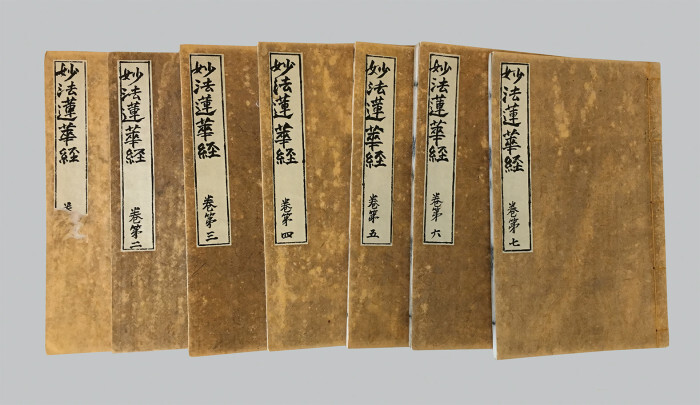 妙法蓮華経
妙法蓮華経
卷第二
妙法蓮華経
卷第三
妙法蓮華経
卷第四
妙法蓮華経
卷第五
妙法蓮華経
卷第六
妙法蓮華経
卷第七